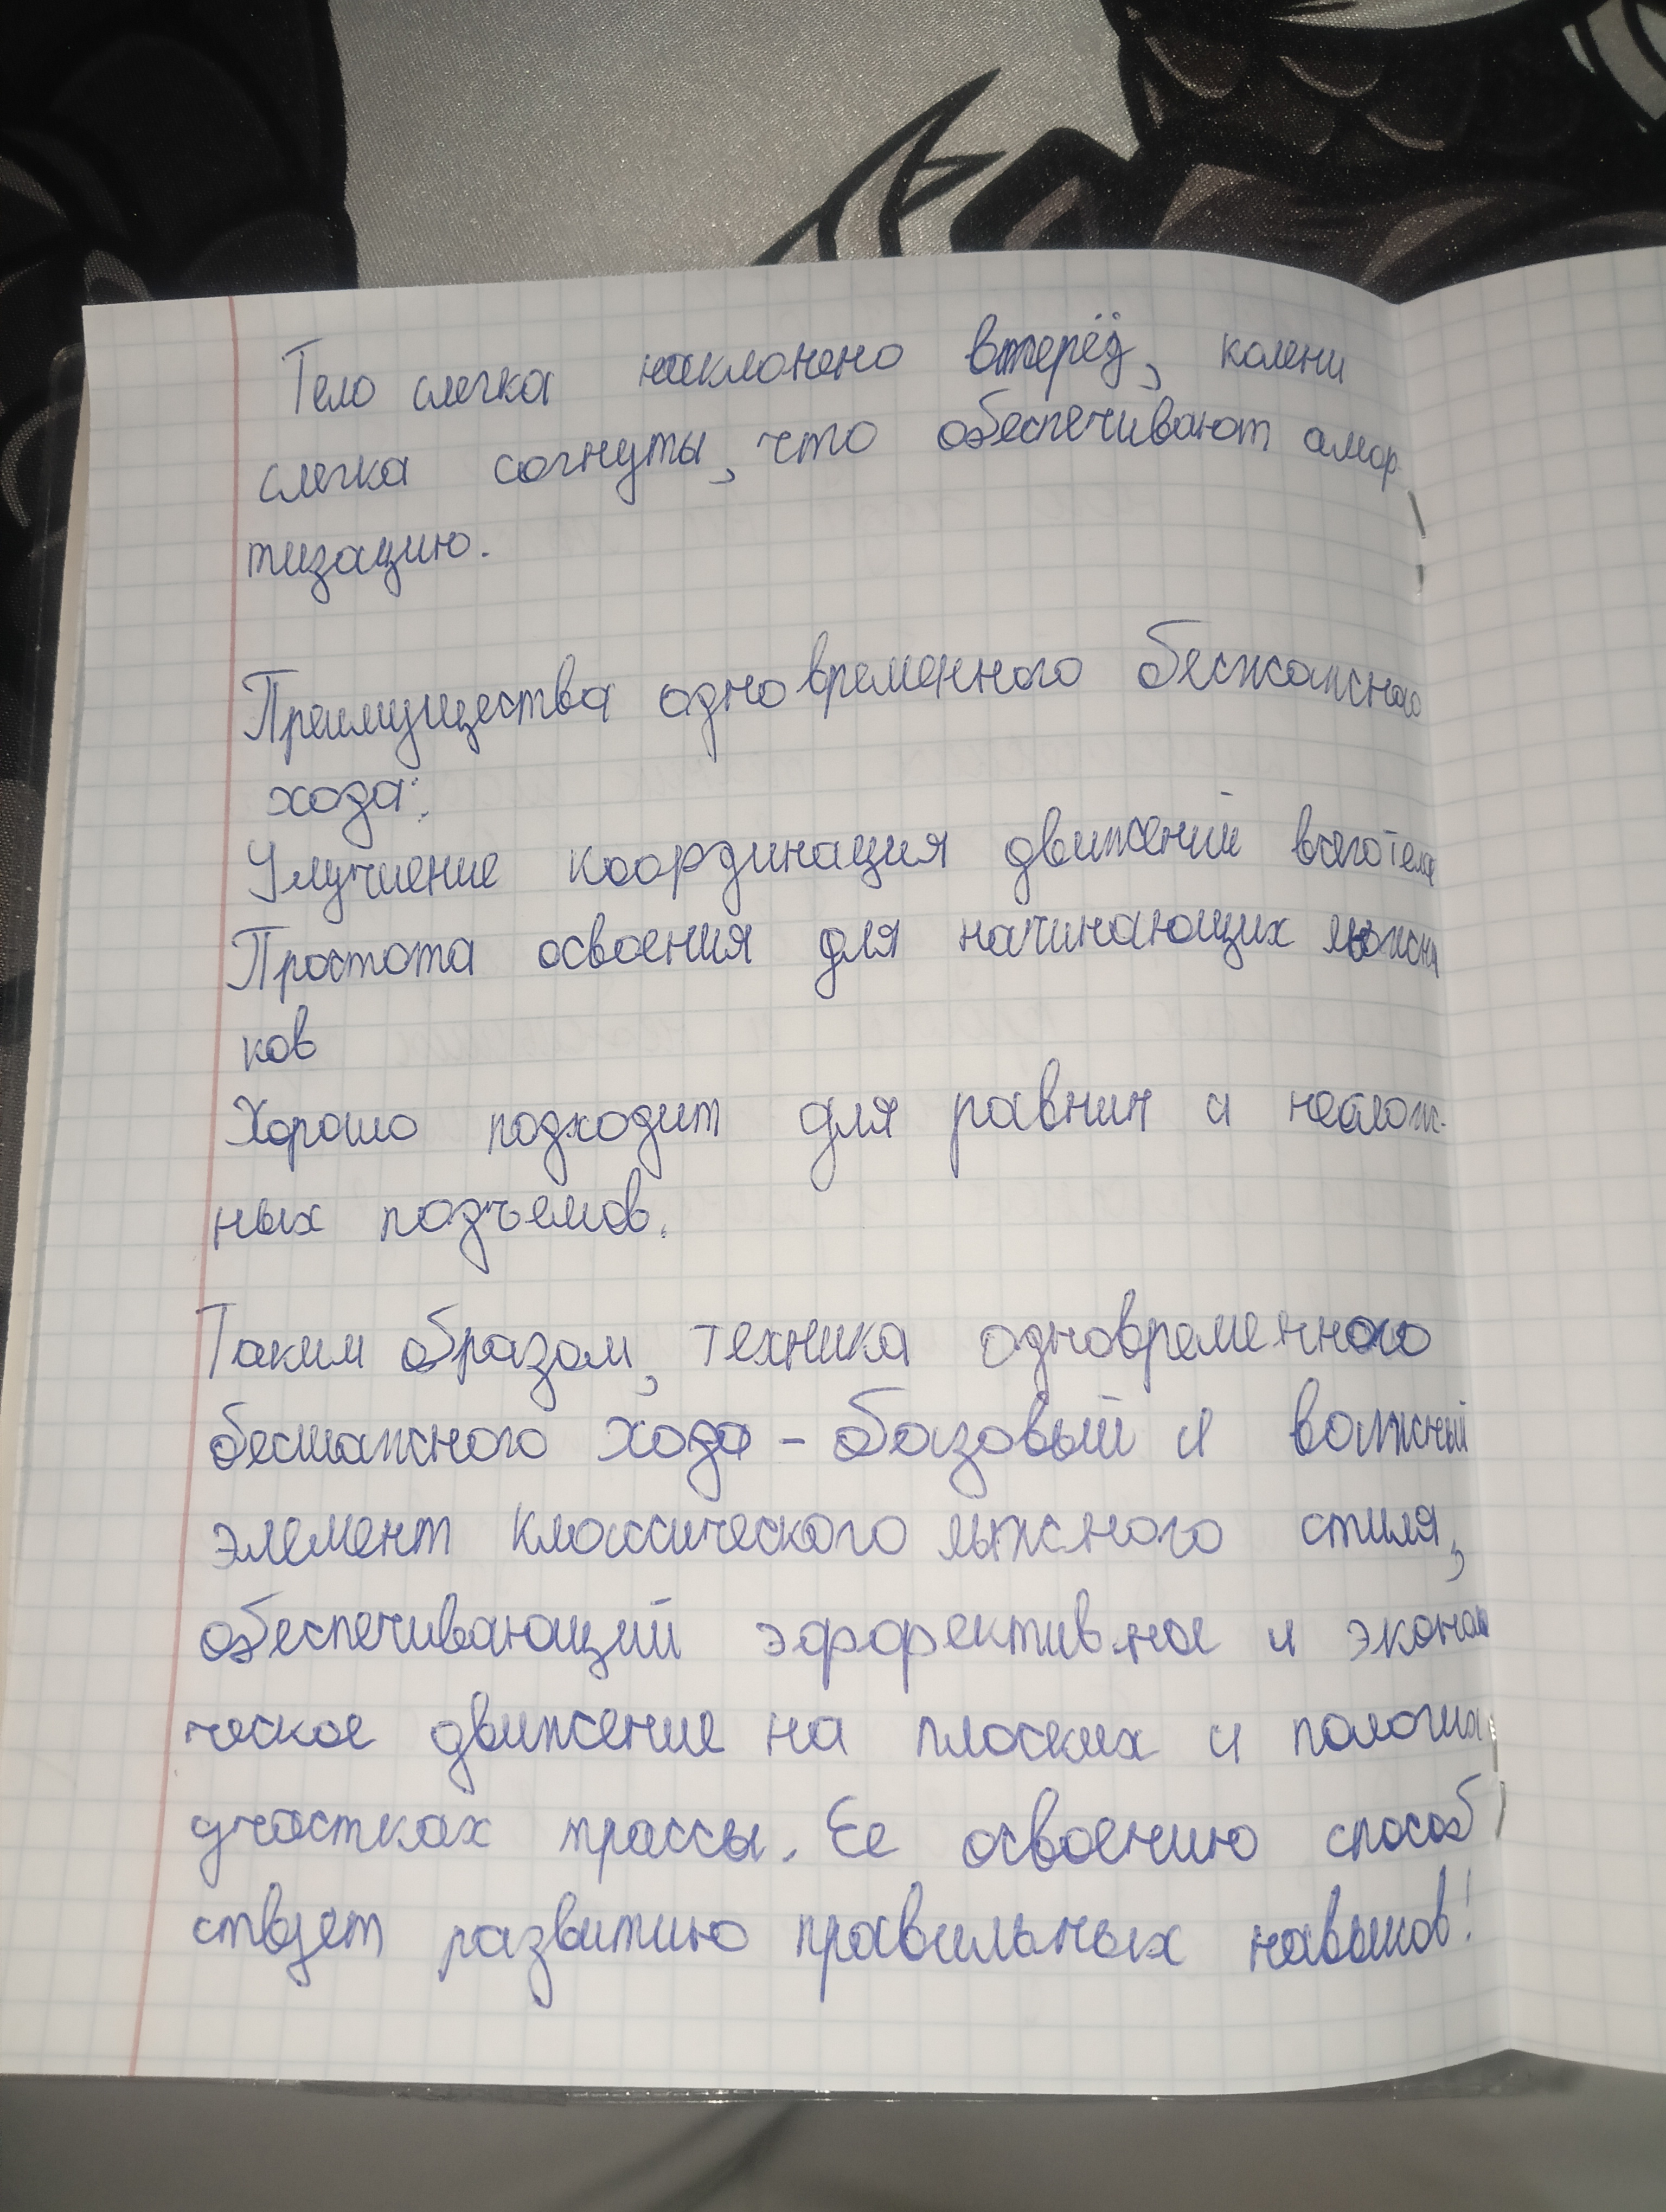 Тело слегка наклонено вперёд, колени
слегка согнуты, что обеспечивают амор
тизацию.
Преимущества одновременного
хода:
Улучшение координация движений всего тела
Простота освоения для начинающих лыжни
ков
Хорошо подходит для равнин и неслож-
ных подъемов.
Таким образом, техника одновременного
бесшажного хода - базовый и важный
элемент классического лыжного стиля,
обеспечивающий эффективное и эконом
ческое движение на плоских и пологих
участках трассы. Ее освоению способ
ствует развитию правильных навыков!